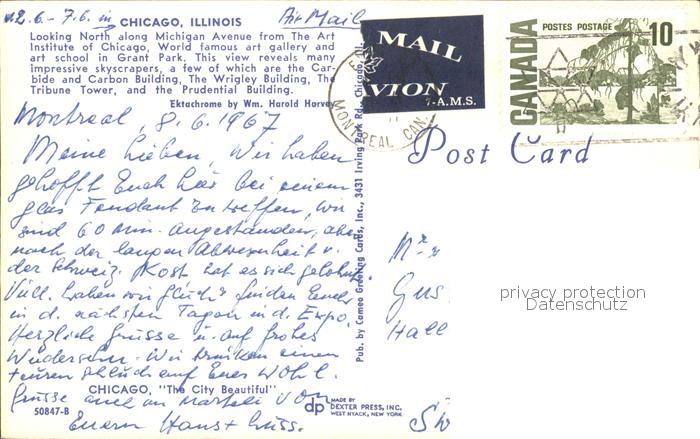 2.6.-7.6. in CHICAGO, ILLINOIS
Air Mail
Looking North along Michigan Avenue from The Art
Institute of Chicago, World famous art gallery and
art school in Grant Park. This view reveals many
impressive skyscrapers, a few of which are the Car-
bide and Carbon Building, The Wrigley Building, The
Tribune Tower, and the Prudential Building.
Ektachrome by Wm. Harold Harvey
Montreal, 8.6.1967
Meine Lieben, Wir haben
gehofft Euch hier bei einem
glas Fendant zu treffen, wir
sind 60 Min. angestanden, aber
nach der langen Abwesenheit v.
der Schweiz. Kost hat es sich gelohnt.
Vill. haben wir glück & finden Euch
in d. nächsten Tagen in d. Expo.
Herzliche Grüsse u. auf frohes
Wiedersehn. Wir trinken einen
teuren Schluck auf Euer Wohl.
CHICAGO, "The City Beautiful"
Grüsse auch an von
50847-B
Euern Hans +
Pub. by Cameo Greeting Cards, Inc., 3431 Irving Park Rd., Chicago, Ill.
dp MADE BY
DEXTER PRESS, INC.
WEST NYACK, NEW YORK
MAIL
AVION
7-A.M.S.
MONTREAL CAN.
CANADA
POSTES POSTAGE
10
Post Card
Gus
Hall
privacy protection
Datenschutz